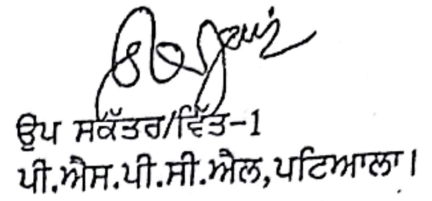 ਉਪ ਸਕੱਤਰ/ਵਿੱਤ-1
ਪੀ.ਐਸ.ਪੀ.ਸੀ.ਐਲ,ਪਟਿਆਲਾ।